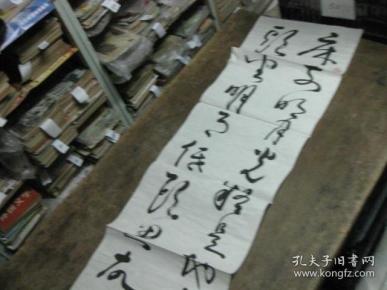 床前明月光疑是地
頭望明月低頭思故
孔夫子旧书网
www.kongfz.com